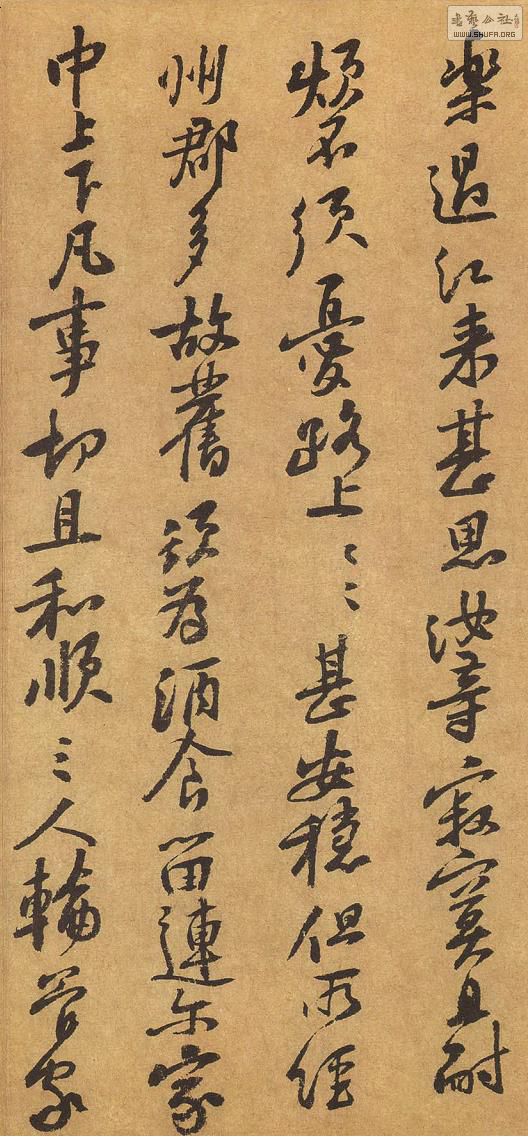 樂過江来甚思汝等寂寞且耐
煩不須憂路上〻〻甚安穩但所經
州郡多故舊須為酒食留連尔家
中上下凡事切且和順三人輪管家
書藝公社
WWW.SHUFA.ORG